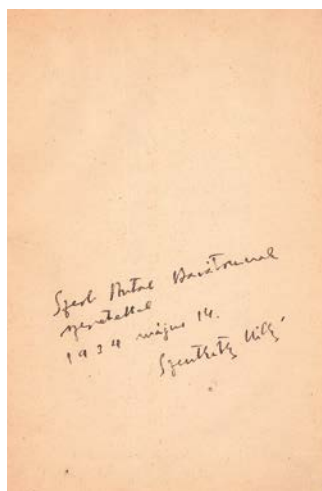 Szerb Antal Barátomnak
szeretettel
1934 május 14.
Szentkuthy Miklós